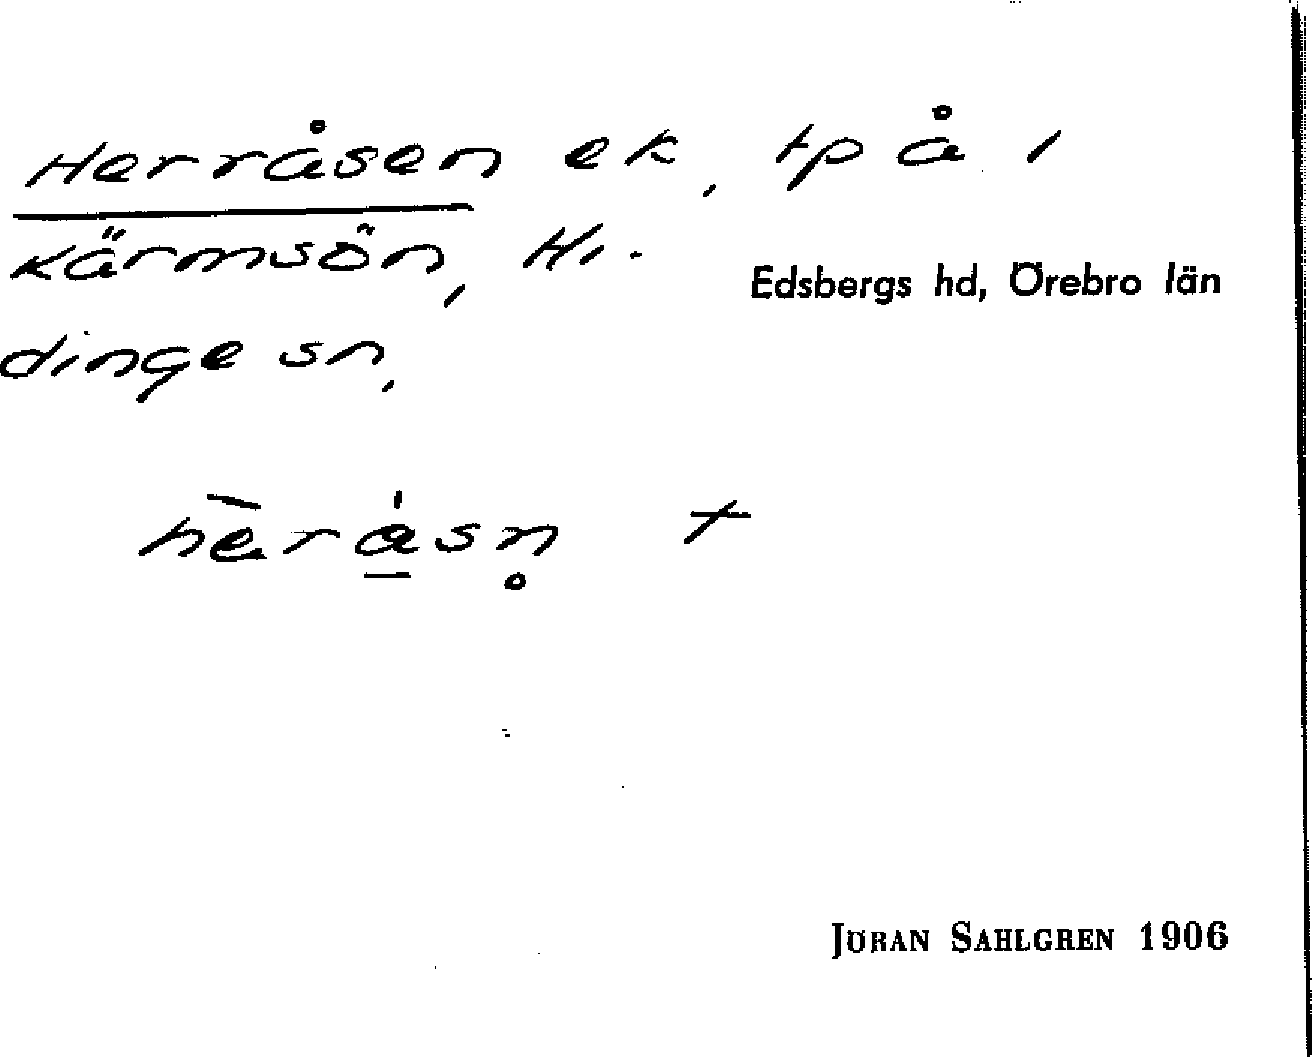 Herråsen ek, tp å i
Kärmsön, Hi-
Edsbergs hd, Örebro län
dinge sn,
+
JÖRAN SAHLGREN 1906